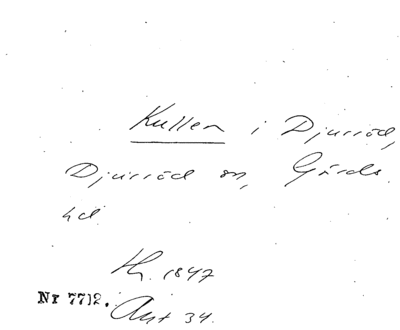 Kullen i Djurröd,
Djurröd sn, Gärds
hd
th. 1847
Nr 7712. Ant 34.